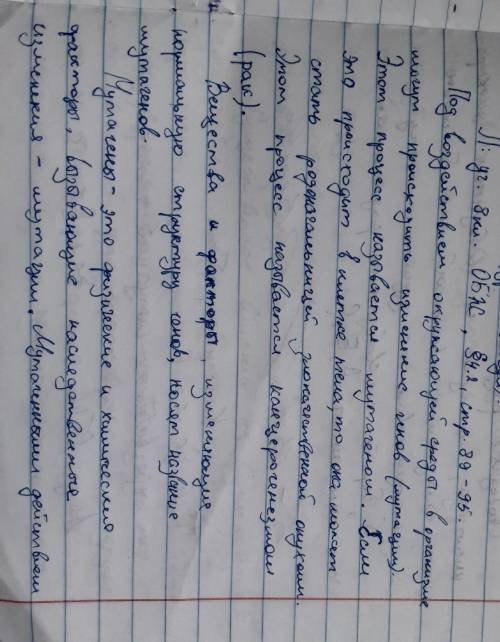 Л: уч. 8кл. ОБЖ, §4.2, стр. 89-95.
Под воздействием окружающей среды в организме
могут происходить изменение генов (мутации).
Этот процесс называется мутагеном. Если
это происходит в клетке тела, то она может
стать родоначальницей злокачественной опухоли.
Этот процесс называется канцерогенезом
(рак).
Вещества и факторы, изменяющие
нормальную структуру генов, носят название
мутагенов.
Мутагены - это физические и химические
факторы, вызывающие наследственные
изменения - мутации. Мутагенным действием